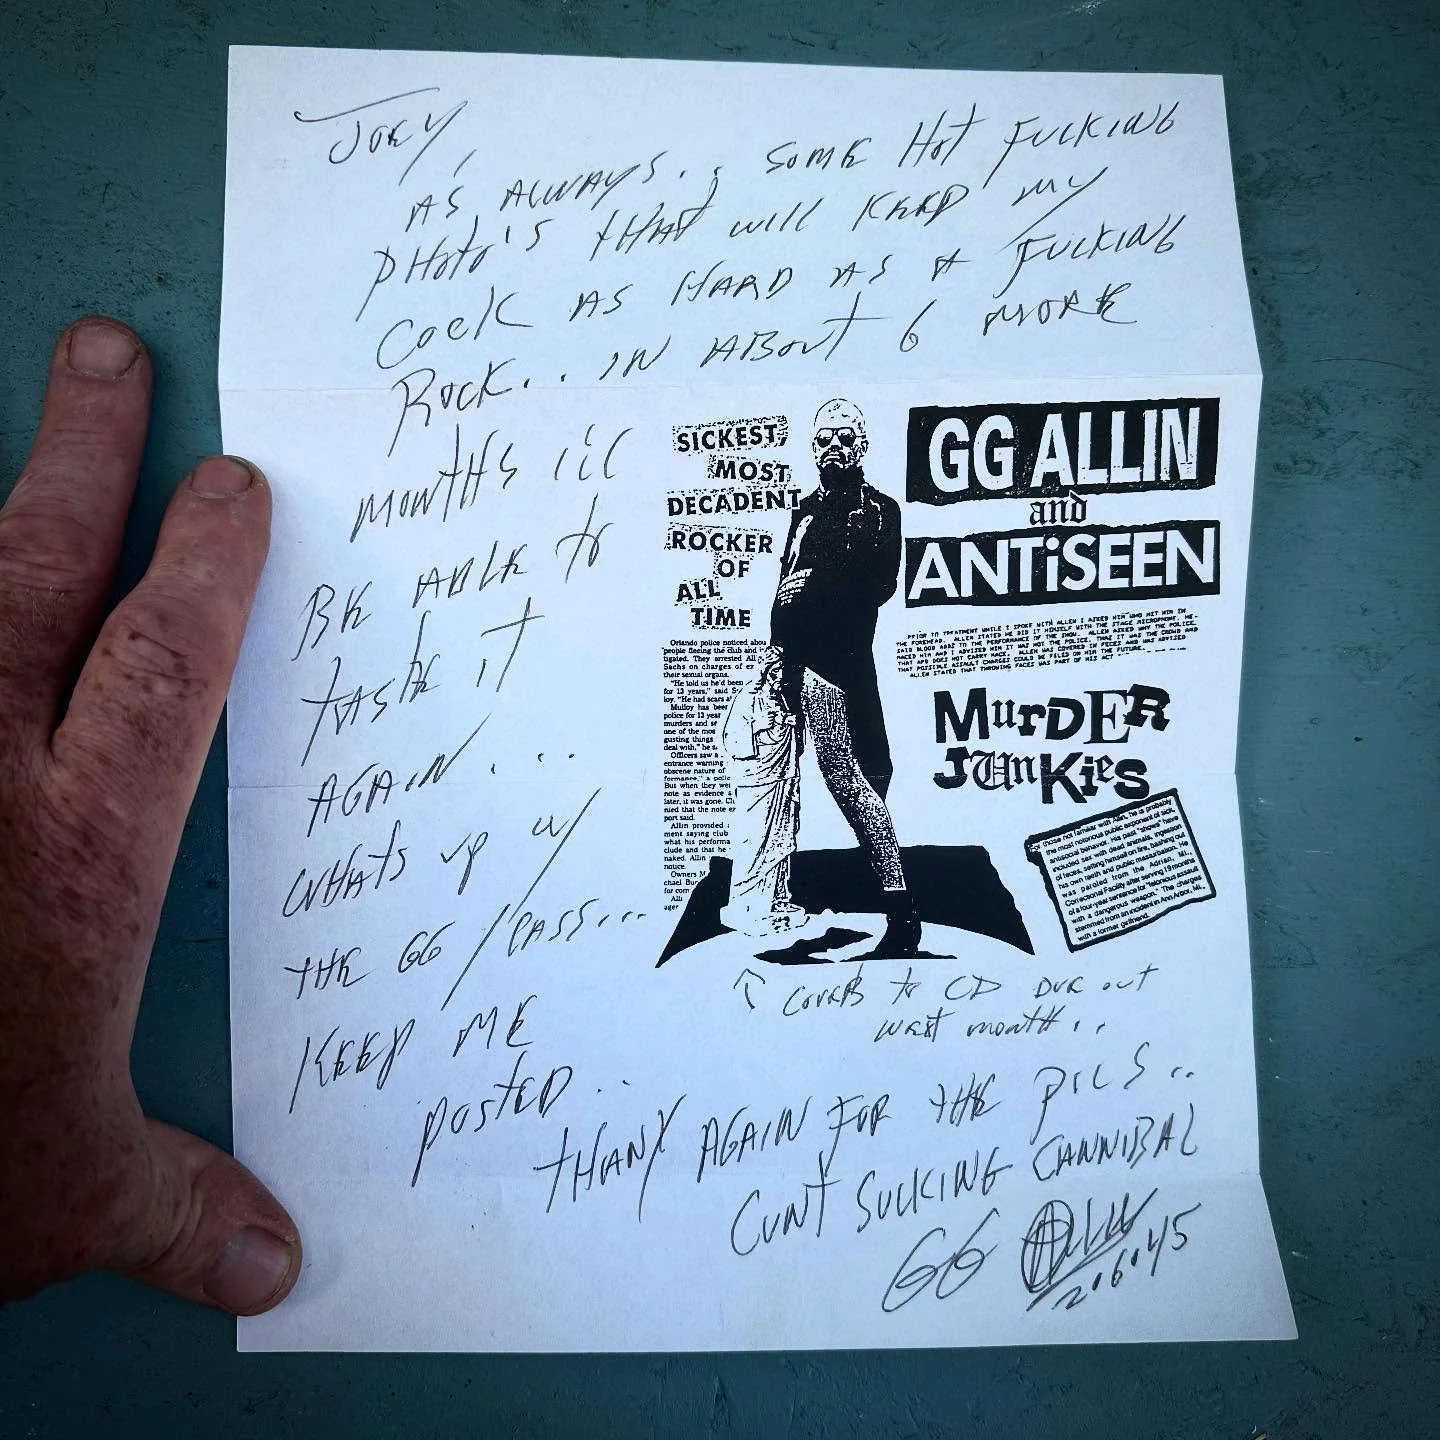 JOEY,
AS ALWAYS.. SOME HOT FUCKING
PHOTO'S THAT WILL KEEP MY
COCK AS HARD AS A FUCKING
ROCK... IN ABOUT 6 MORE
MONTHS I'LL
BE ABLE TO
TASTE IT
AGAIN...
WHATS UP W/
THE GG/PASS...
KEEP ME
POSTED..
THANX AGAIN FOR THE PICS..
CUNT SUCKING CANNIBAL
GG ALLIN
206045
SICKEST,
MOST
DECADENT
ROCKER
OF
ALL
TIME
GG ALLIN
and
ANTiSEEN
PRIOR TO TREATMENT WHILE I SPOKE WITH ALLEN I ASKED HIM WHO HIT HIM IN
THE FOREHEAD. ALLEN STATED HE DID IT HIMSELF WITH THE STAGE MICROPHONE. HE
SAID BLOOD ADDS TO THE PERFORMANCE OF THE SHOW. ALLEN ASKED WHY THE POLICE
MACED HIM AND I ADVISED HIM IT WAS NOT THE POLICE, THAT IT WAS THE CROWD AND
THAT APD DOES NOT CARRY MACE. ALLEN WAS COVERED IN FECES AND WAS ADVISED
THAT POSSIBLE ASSAULT CHARGES COULD BE FILED ON HIM IN THE FUTURE.
ALLEN STATED THAT THROWING FACES WAS PART OF HIS ACT
MURDER
JUNKiES
Orlando police noticed abou
people fleeing the club and i
tigated. They arrested All
Sachs on charges of ex
their sexual organs.
"He told us he'd been
for 13 years," said S
loy. "He had scars a
Mulloy has beer
police for 12 year
murders and se
one of the mos
gusting things
deal with," he s
Officers saw a
entrance warning
obscene nature of
formance," a polic
But when they wei
note as evidence a
later, it was gone. Cl
nied that the note e
port said.
Allin provided
ment saying club
what his performa
clude and that he
naked. Allin
notice.
Owners M
chael Buc
for com
Alli
ager
For those not familiar with Allin, he is probably
the most notorious public exponent of sick,
antisocial behavior. His past "shows" have
included sex with dead animals, ingestion
of feces, setting himself on fire, bashing out
his own teeth and public masturbation. He
was paroled from the Adrian, MI.,
Correctional Facility after serving 19 months
of a four-year sentence for "felonious assault
with a dangerous weapon." The charges
stemmed from an incident in Ann Arbor, MI.,
with a former girlfriend.
↑ COVER TO CD DUE OUT
NEXT MONTH..